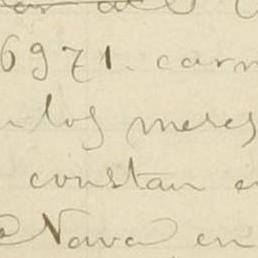 6971. carn
los meses
constan e
Nava en